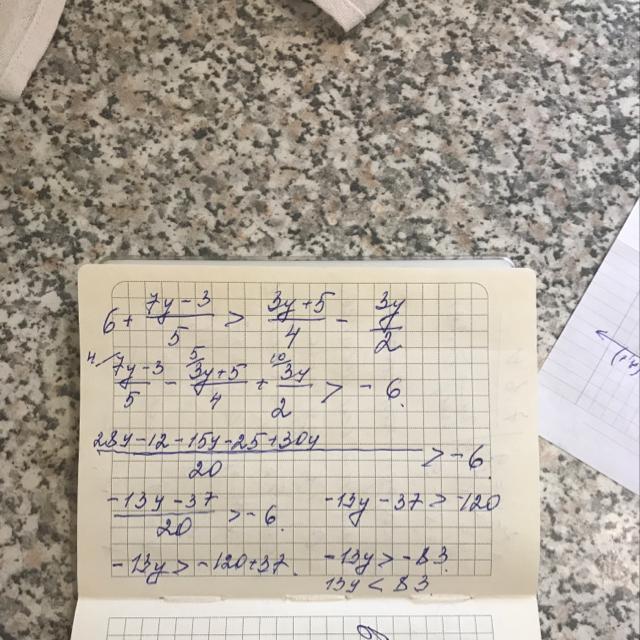 6 + (7y - 3)/5 > (3y + 5)/4 - 3y/2
4/ (7y - 3)/5 - 5/ (3y + 5)/4 + 10/ 3y/2 > - 6.
(28y - 12 - 15y - 25 + 30y)/20 > - 6.
(-13y - 37)/20 > - 6. -13y - 37 > -120
-13y > -120 + 37. -13y > -83.
13y < 83.